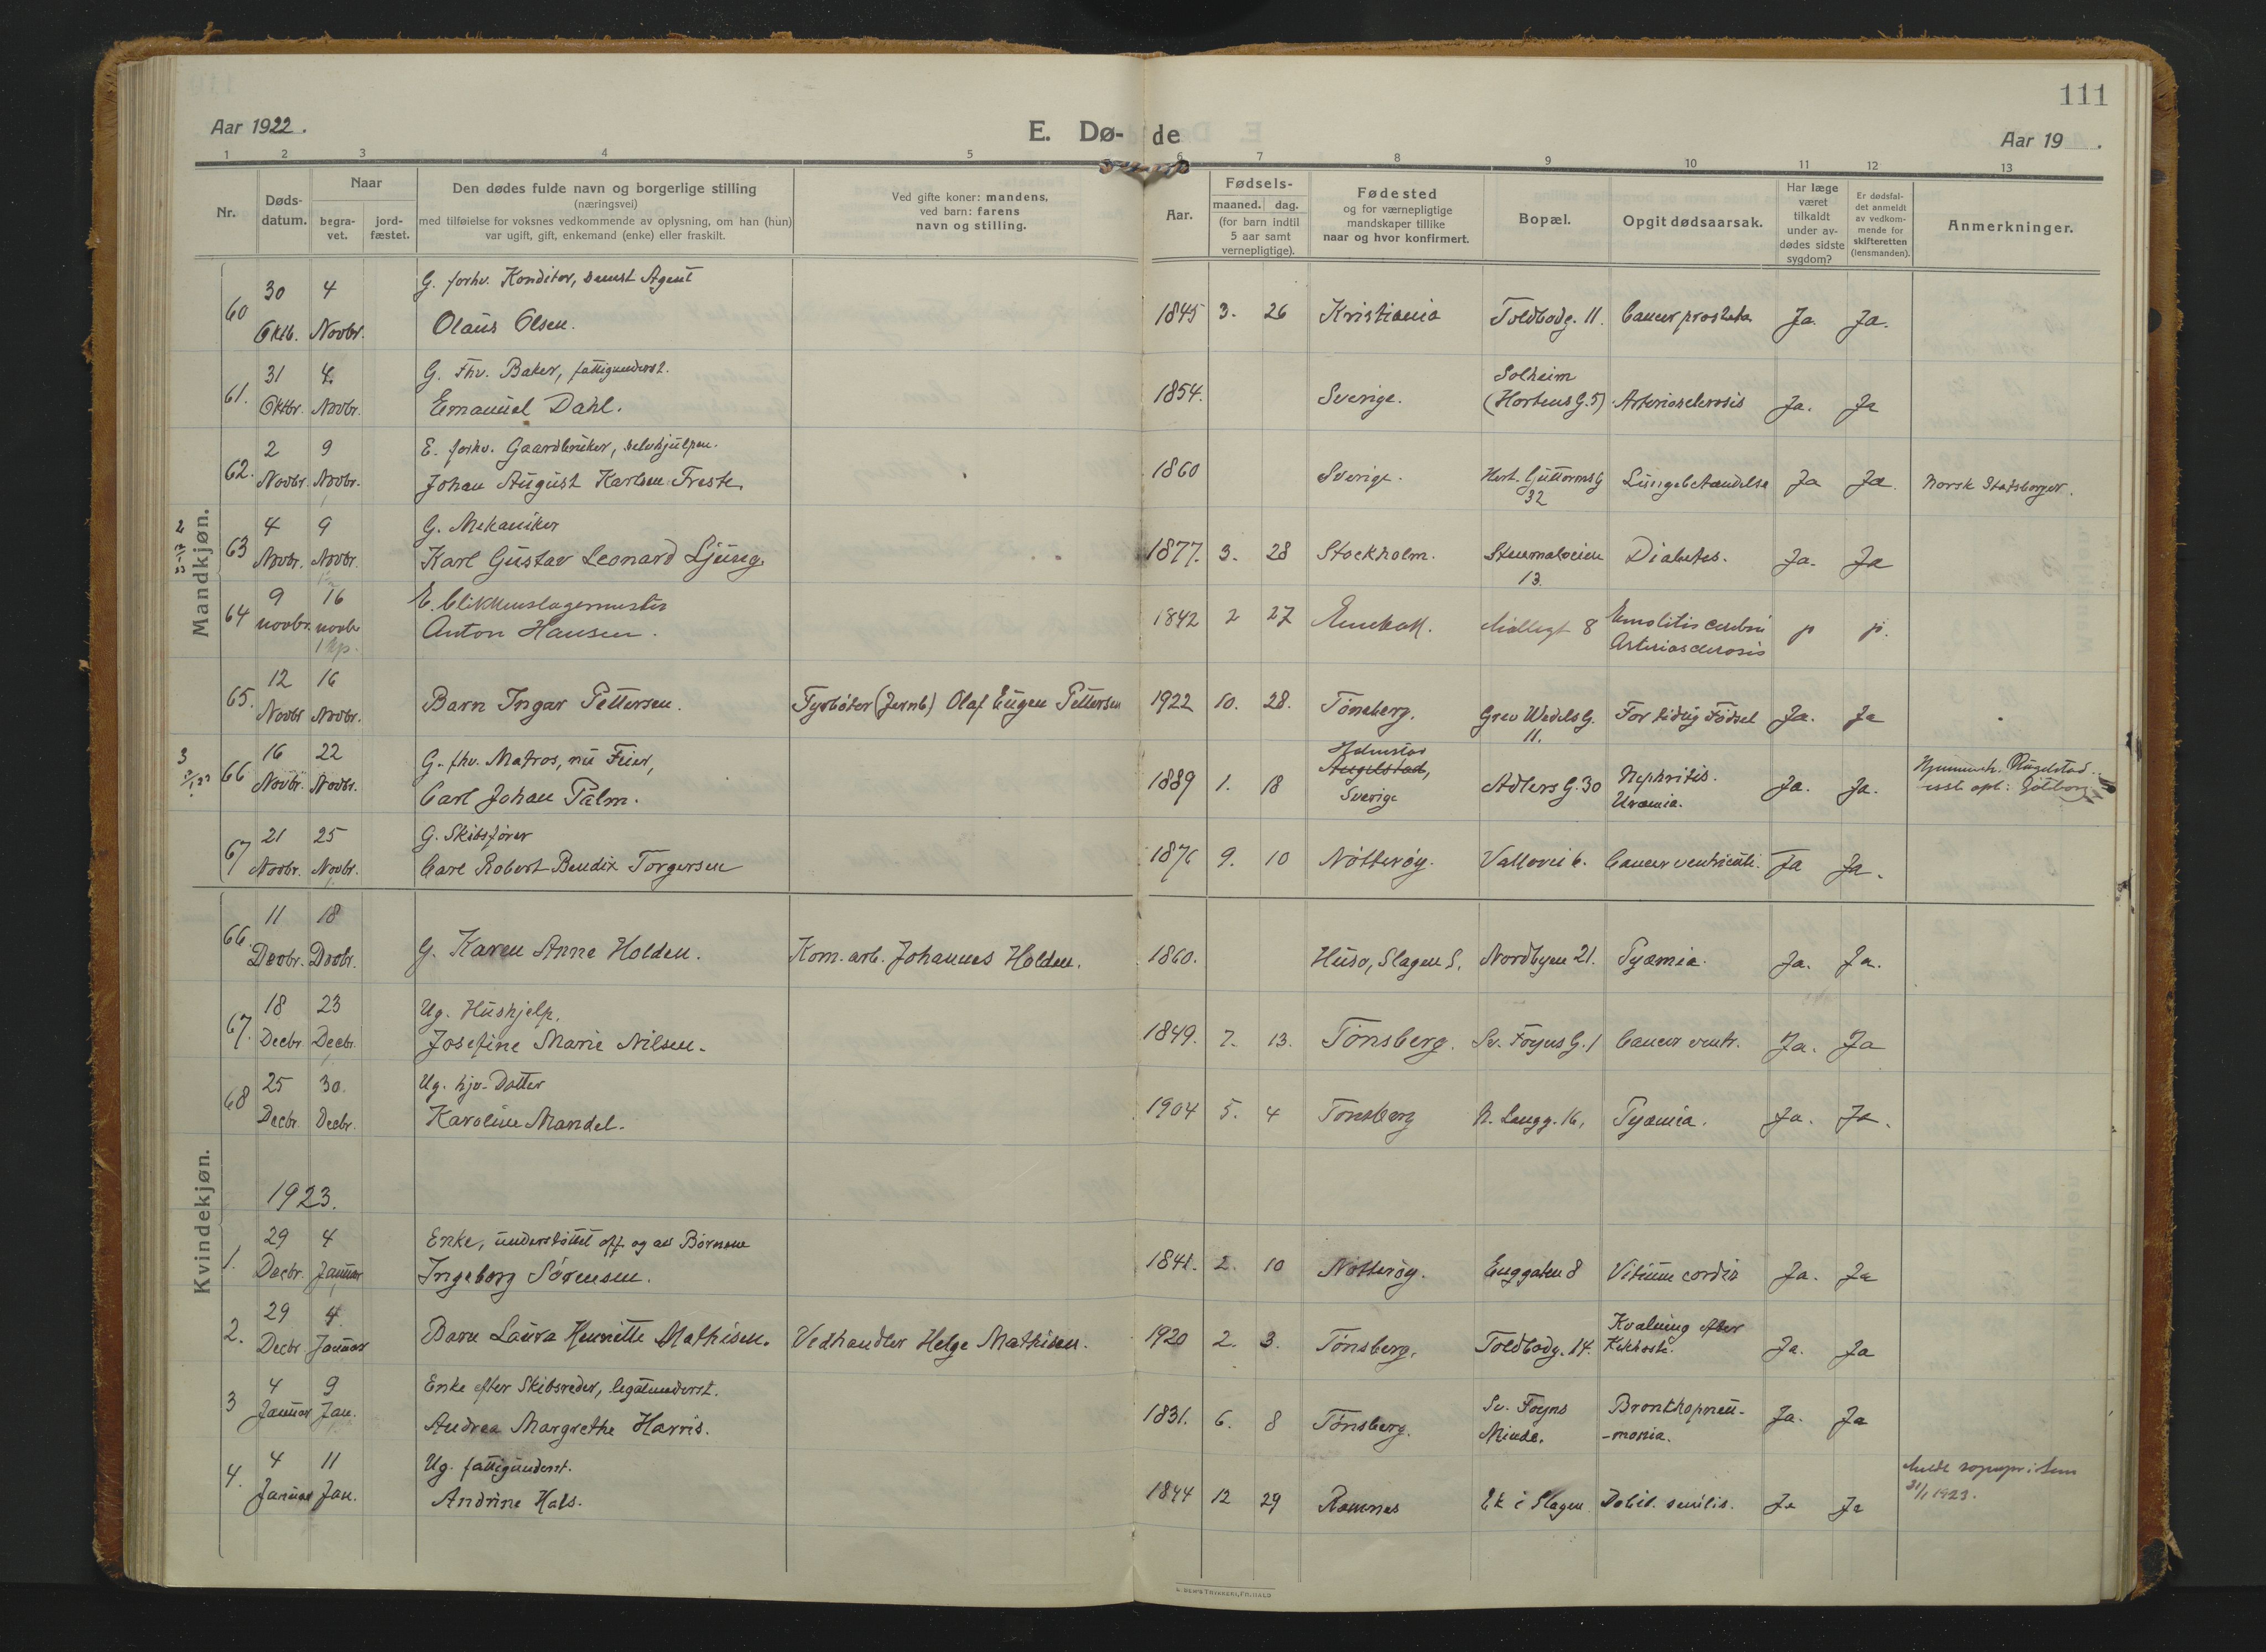 111
Aar 1922.
E. Dø- de
Aar 19 .
1 2 3 4 5 6 7 8 9 10 11 12 13
Nr.
Døds-
datum.
Naar
begra-
vet.
jord-
fæstet.
Den dødes fulde navn og borgerlige stilling
(næringsvei)
med tilføielse for voksnes vedkommende av oplysning, om han (hun)
var ugift, gift, enkemand (enke) eller fraskilt.
Ved gifte koner: mandens,
ved barn: farens
navn og stilling.
Aar.
Fødsels-
maaned. dag.
(for barn indtil
5 aar samt
vernepligtige).
Fødested
og for værnepligtige
mandskaper tillike
naar og hvor konfirmert.
Bopæl.
Opgit dødsaarsak.
Har læge
været
tilkaldt
under av-
dødes sidste
sygdom?
Er dødsfal-
det anmeldt
av vedkom-
mende for
skifteretten
(lensmanden).
Anmerkninger.
Mandkjøn.
60 30 Oktb. 4 Novbr. G. forhv. Konditor, senest Agent
Olaus Olsen. 1845 3. 26 Kristiania Toldbodg. 11. Cancer prostata Ja. Ja.
61. 31 Oktbr. 4. Novbr. G. Fhv. Baker, fattigunderst.
Emanuel Dahl. 1854. Sverige. Solheim
(Hortens G. 5) Arteriosclerosis Ja. Ja
62. 2 Novbr. 9 Novbr. E. forhv. Gaardbruker, selvhjulpen.
Johan August Karlsen Freste. 1860 Sverige. Hert. Guttorms G
32 Lungebetændelse Ja Ja. Norsk Statsborger.
63 4 Novbr. 9 Novbr. G. Mekaniker
Karl Gustav Leonard Ljung. 1877. 3. 28 Stockholm. Stenmaloeien
13. Diabetes. Ja. Ja
64 9 novbr. 16 novbr E. blikkenslagermester
Anton Hansen. 1842 2 27 Enebak. 8 cerebri
Arteriosclerosis
65. 12 Novbr 16 Novbr. Barn Ingar Pettersen. Fyrbøter (Jernb) Olaf Eugen Pettersen 1922 10. 28. Tønsberg. Grev Wedels G.
11. For tidlig Fødsel Ja. Ja
66 16 Novbr. 22 Novbr. G. fhv. Matros, nu Feier,
Carl Johan Palm. 1889 1. 18 Halmstad
Angelstad,
Sverige Adlers G. 30 Nephritis.
Uræmia. Ja. Ja.
67 21 Novbr. 25 Novbr. G. Skibsfører
Carl Robert Bendix Torgersen 1876 9. 10 Nøtterøy. Vallovei 6. Cancer ventriculi. Ja Ja.
Kvindekjøn.
66. 11 Decbr. 18 Decbr. G. Karen Anne Holden. Kom. arb. Johannes Holden. 1860. Husø, Slagen S. Nordbyen 21. Pyæmia. Ja. Ja.
67. 18 Decbr. 23 Decbr. Ug. Hushjelp.
Josefine Marie Nilsen. 1849. 7. 13. Tønsberg. Sv. Foyns G. 1 Cancer ventr. Ja. Ja
68 25 Decbr. 30. Decbr. Ug. hjv. Datter
Karoline Mandel. 1904 5. 4 Tønsberg N. Langg. 16, Pyæmia. Ja. Ja.
1923.
1. 29 Decbr. 4 Januar Enke, understøttet off. og av Børnene
Ingeborg Sørensen. 1841. 2. 10 Nøtterøy. Enggaten 8 Vitium cordis Ja. Ja
2. 29 Decbr 4. Januar Barn Laura Henriette Mathisen. Vedhandler Helge Mathisen. 1920 2. 3. Tønsberg. Toldbodg. 14. Kvælning efter
Kikhoste. Ja. Ja
3 4 Januar 9 Jan. Enke efter Skibsreder, legatunderst.
Andrea Margrethe Harris. 1831. 6. 8 Tønsberg. Sv. Foyns
Minde. Bronkhopneu-
-monia. Ja. Ja
4. 4 Januar 11 Jan. Ug. fattigunderst.
Andrine Hals. 1844 12 29 Ramnes Ek i Slagen Debil. senilis. Ja Ja 31/1 1923.